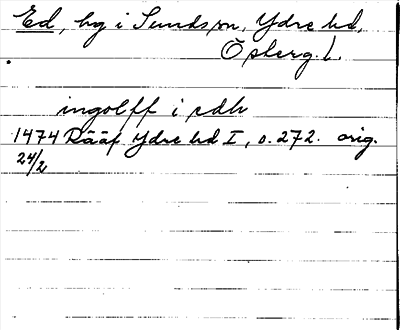 Ed, hg i Sunds sn, Ydre hd,
Österg. l.
ingolff i edh
1474 Rääf Ydre hd I, s. 272. orig.
24/2